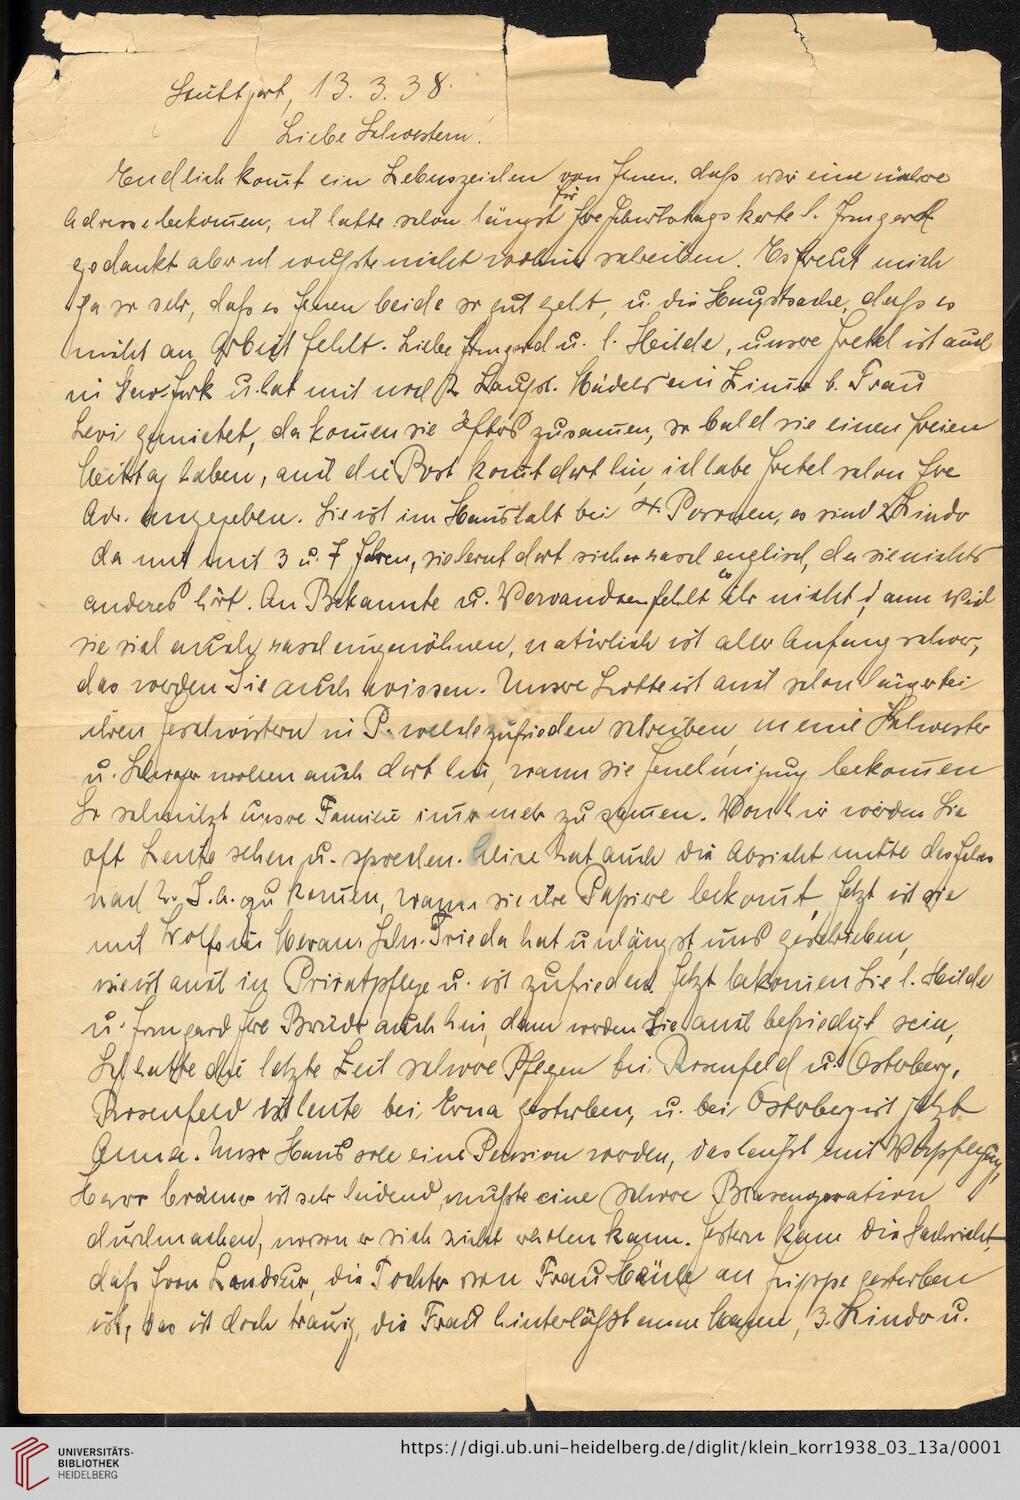 Stuttgart, 13. 3. 38.
Liebe Schwestern!
Endlich komt ein Lebenszeichen von Ihnen, dass wir eine nähere
Adresse bekomen, ich hatte schon längst für Ihre Geburtstagskarte l. Irmgard
gedankt aber ich wusste nicht wohin schreiben. Es freut mich
ja so sehr, dass es Ihnen beide so gut geht, u. die Hauptsache, dass es
nicht an Arbeit fehlt. Liebe Irmgard u. l. Hilde, unsere Gretel ist auch
in New-York u. hat mit noch 2 Mädels ein Zimer b. Frau
Levi gemietet, da komen sie öfters zusamen, so bald sie einen freien
Mittag haben, auch die Post komt dort hin, ich habe Gretel schon Ihre
Adr. angegeben. Sie ist im Haushalt bei 4 Personen, es sind 2 Kinder
da mit 3 u. 7 Jahren, sie lernt dort sicher rasch englisch, da sie nichts
anderes hört. An Bekannte u. Verwandten fehlt es ihr nicht, dann wird
sie sich auch rasch eingewöhnen, natürlich ist aller Anfang schwer,
das werden Sie auch wissen. Unsere Lotte ist auch schon länger bei
ihren Geschwistern in P. welche zufrieden schreiben, meine Schwester
u. Schwager wollen auch dort hin, wann sie Genehmigung bekomen
So schmilzt unsre Familie imer mehr zu samen. Von hier werden Sie
oft Leute sehen u. sprechen. hat auch die Absicht mitte des Jahres
nach U. S. A. zu komen, wann sie ihre Papiere bekomt, Jetzt ist sie
mit in Meran. Schw. Frieda hat unlängst uns geschrieben,
sie ist auch in Privatpflege u. ist zufrieden. Jetzt bekomen Sie l. Hilde
u. Irmgard Ihre Brüder auch hin, dann werden Sie auch befriedigt sein,
Ich hatte die letzte Zeit schwere Pflegen bei Rosenfeld u. Osterberg,
Rosenfeld ist heute bei Erna gestorben, u. bei Osterberg ist jetzt
Anna. Unser Haus soll eine Pension werden, das heisst mit Verpflegung,
Herr ist sehr leidend, musste eine schwere Blasenoperation
durchmachen, wovon er sich nicht erholen kann. Gestern kam die Nachricht,
dass Frau Landauer, die Tochter von Frau an Grippe gestorben
ist, das ist doch traurig, die Frau hinterlässt einen Mann, 3. Kinder u.
UNIVERSITÄTS-
BIBLIOTHEK
HEIDELBERG
https://digi.ub.uni-heidelberg.de/diglit/klein_korr1938_03_13a/0001